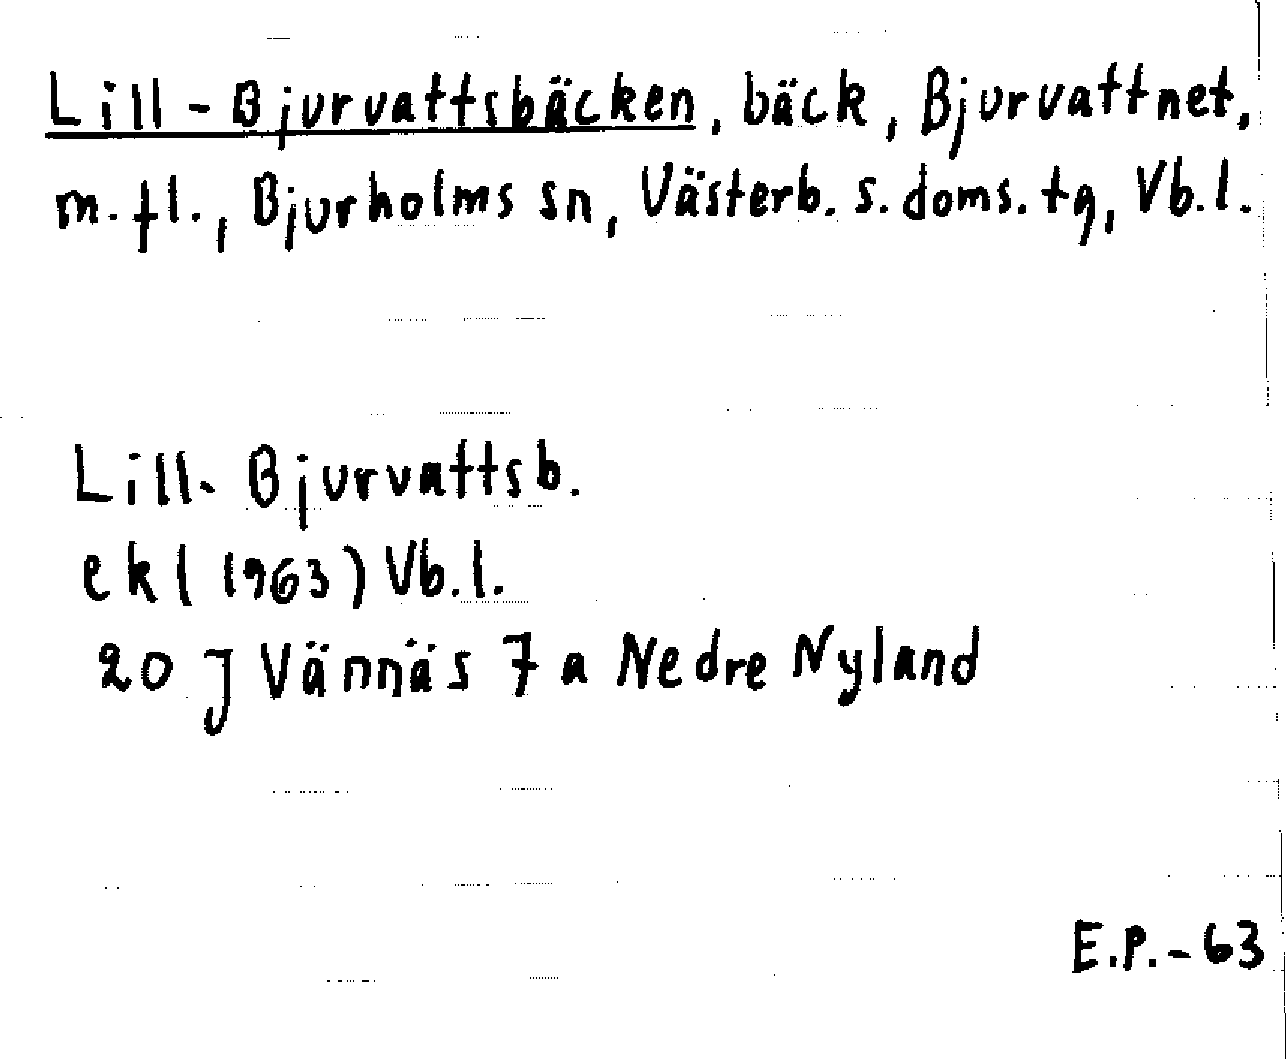 Lill-Bjurvattsbäcken, bäck, Bjurvattnet,
m.fl., Bjurholms sn, Västerb. s. doms. tg, Vb.l.
Lill-Bjurvattsb.
ek (1963) Vb.l.
20 J Vännäs 7 a Nedre Nyland
E.P.-63